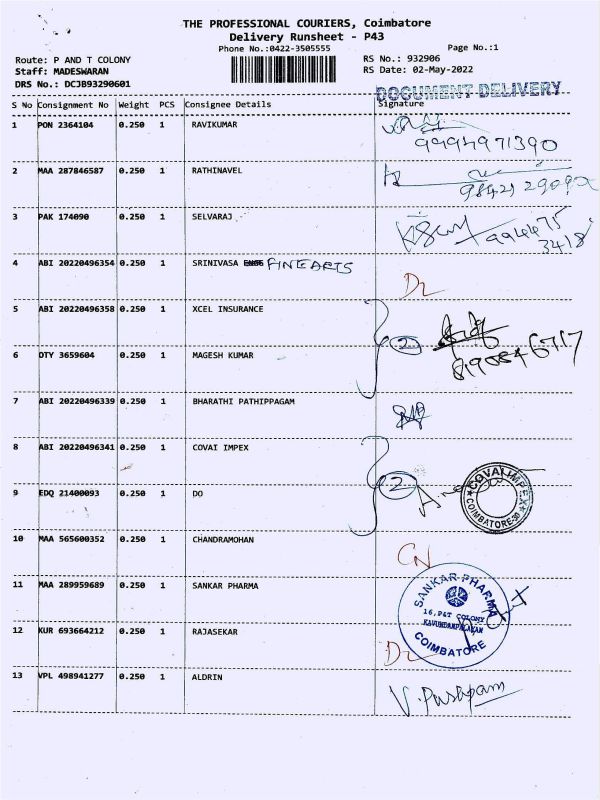 THE PROFESSIONAL COURIERS, Coimbatore
Delivery Runsheet - P43
Phone No.:0422-3505555
Page No.:1
Route: P AND T COLONY
Staff: MADESWARAN
DRS No.: DCJB93290601
RS No.: 932906
RS Date: 02-May-2022
DOCUMENT DELIVERY
S No Consignment No Weight PCS Consignee Details Signature
1 PON 2364104 0.250 1 RAVIKUMAR
9994971390
2 MAA 287846587 0.250 1 RATHINAVEL
3 PAK 174090 0.250 1 SELVARAJ
994475
3418
4 ABI 20220496354 0.250 1 SRINIVASA FINEARTS
5 ABI 20220496358 0.250 1 XCEL INSURANCE
2
6 DTY 3659604 0.250 1 MAGESH KUMAR
7 ABI 20220496339 0.250 1 BHARATHI PATHIPPAGAM
8 ABI 20220496341 0.250 1 COVAI IMPEX
2
COVAI IMPEX
COIMBATORE-30
9 EDQ 21400093 0.250 1 DO
10 MAA 565600352 0.250 1 CHANDRAMOHAN
CN
11 MAA 289959689 0.250 1 SANKAR PHARMA
SANKAR PHARMA
16, P&T COLONY
KAVUNDAMPALAYAM
COIMBATORE
12 KUR 693664212 0.250 1 RAJASEKAR
13 VPL 498941277 0.250 1 ALDRIN
V. Pushpam